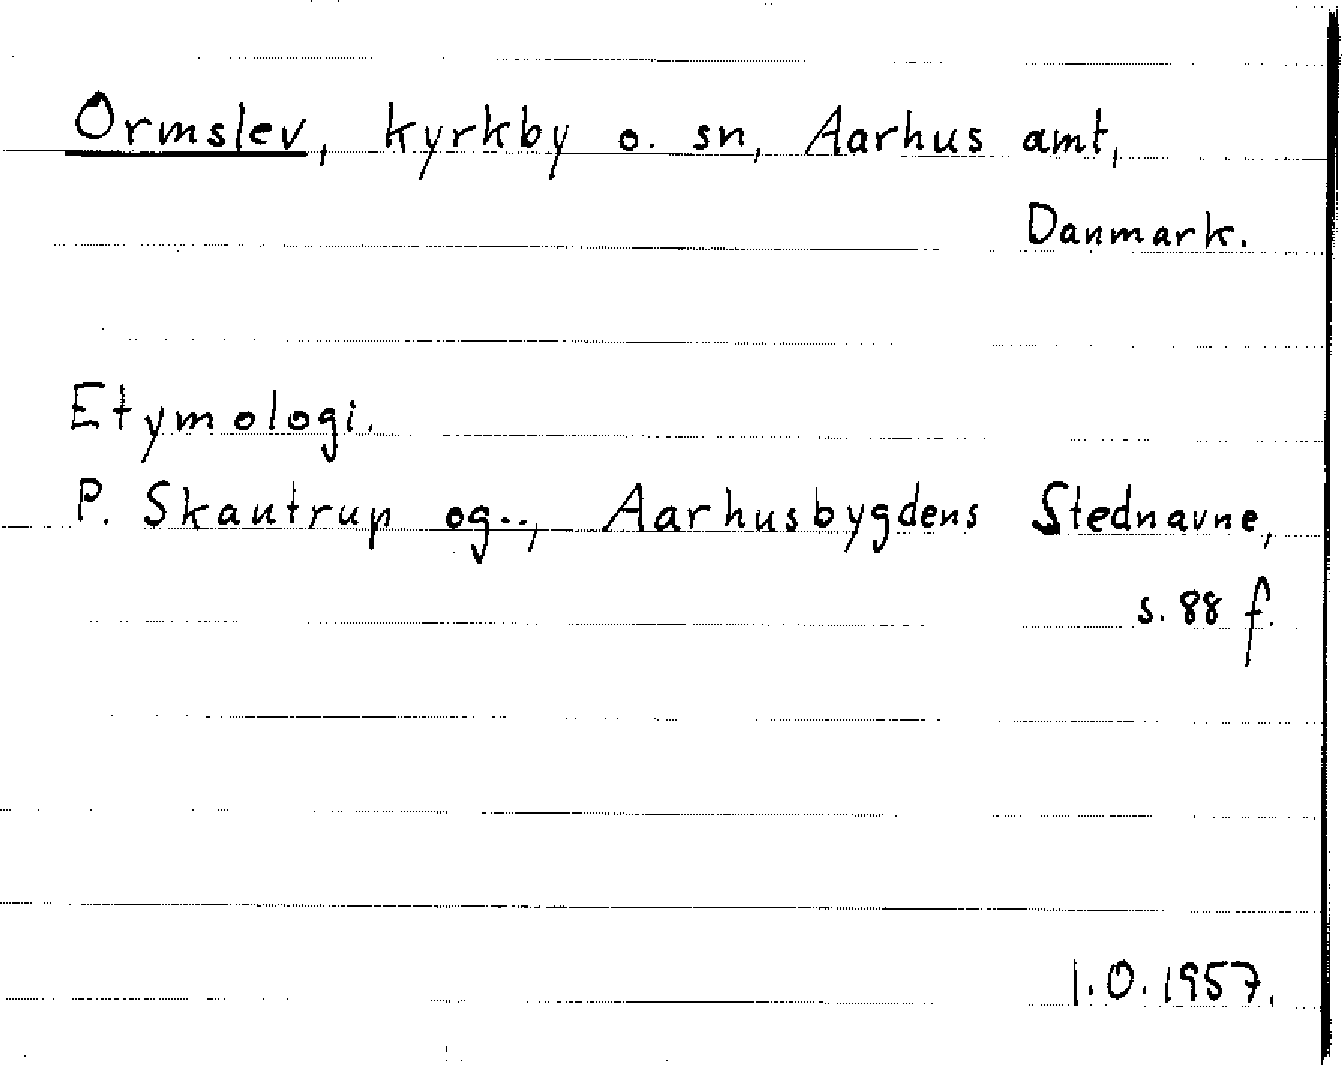 Ormslev, kyrkby o. sn, Aarhus amt,
Danmark.
Etymologi.
P. Skautrup og.., Aarhusbygdens Stednavne,
s. 88 f.
I.O. 1957.